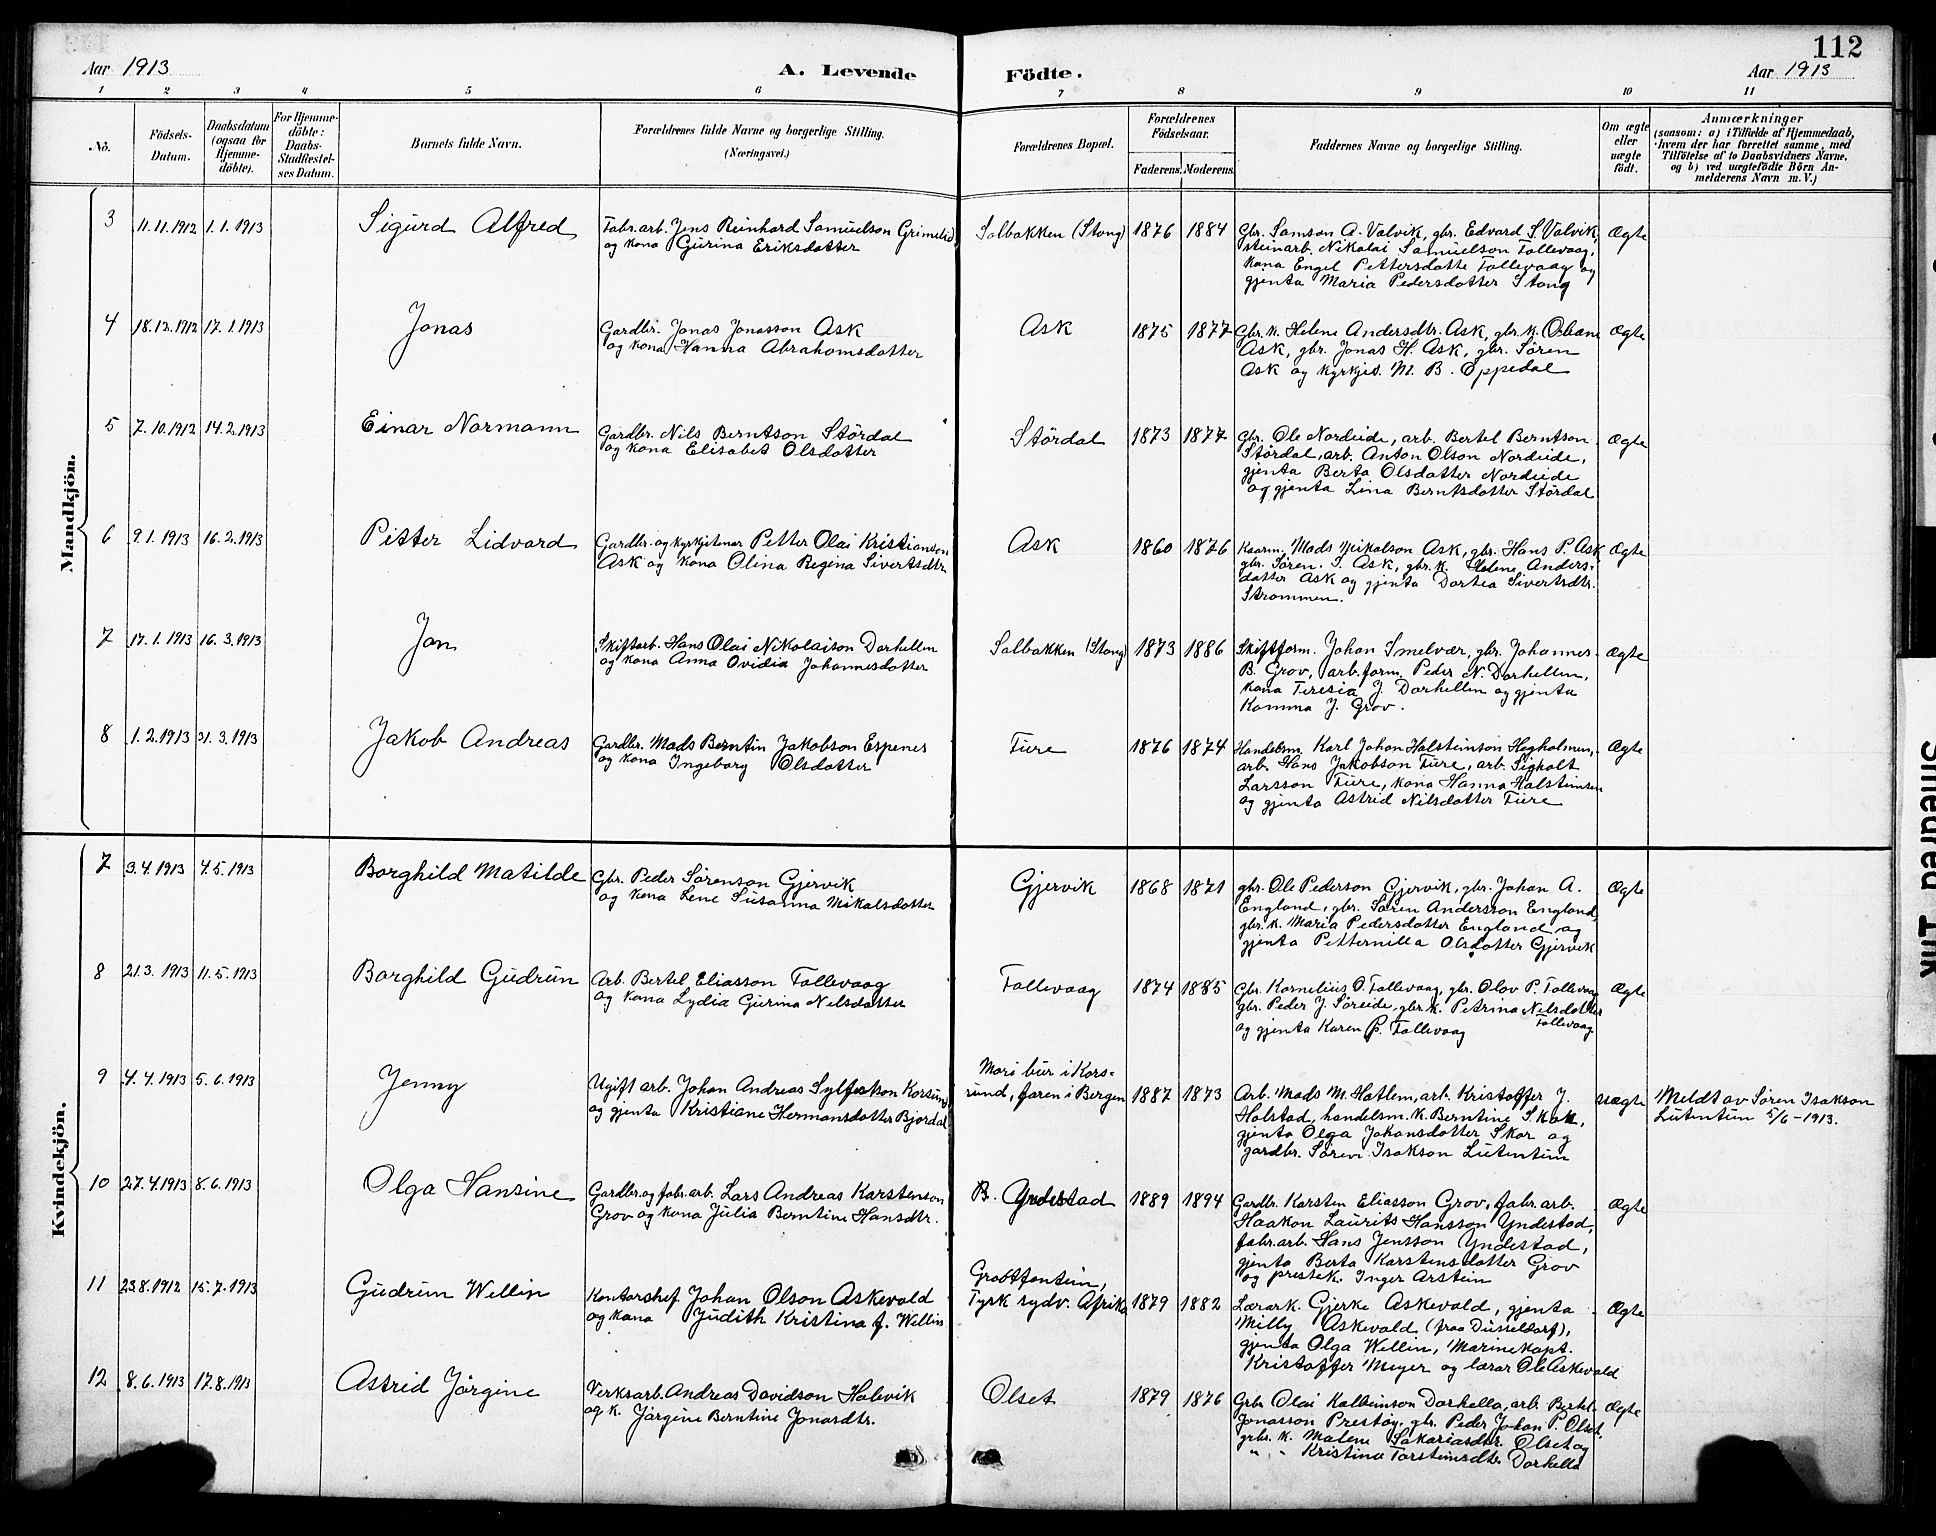 112
Aar 1913
A. Levende Födte.
Aar 1913
1 2 3 4 5 6 7 8 9 10 11
No.
Födsels-Datum.
Daabsdatum (ogsaa for Hjemme-döbte).
For Hjemme-döbte: Daabs-Stadfæstel-ses Datum.
Barnets fulde Navn.
Forældrenes fulde Navne og borgerlige Stilling.
(Næringsvei.)
Forældrenes Bopæl.
Forældrenes Födselsaar.
Faderens. Moderens.
Faddernes Navne og borgerlige Stilling.
Om ægte eller uægte födt.
Anmærkninger
(saasom: a) i Tilfælde af Hjemmedaab,
hvem der har forrettet samme, med
Tilföielse af to Daabsvidners Navne,
og b) ved uægtefödte Börn An-
melderens Navn m. V.)
Mandkjön.
3 11.11.1912 1.1.1913 Sigurd Alfred
Fabr.arb. Jens Reinhard Samuelson Grimelid
og kona Gurina Eriksdotter
Solbakken (Stong) 1876 1884
Gbr. Samson A. Valvik, gbr. Edvard S. Valvik,
steinarb. Nikolai Samuelson Tollevaag,
kona Engel Pettersdotte Tollevaag og
gjenta Maria Pedersdotter Stong
Ægte
4 18.12.1912 17.1.1913 Jonas
Gardbr. Jonas Jonasson Ask
og kona Hanna Abrahamsdotter
Ask 1875 1877
Gbr. k. Helene Andersdtr. Ask, gbr. k. Obane
Ask, gbr. Jonas H. Ask, gbr. Søren
Ask og kyrkjes. M. B. Oppedal
Ægte
5 7.10.1912 14.2.1913 Einar Normann
Gardbr. Nils Berntson Stördal
og kona Elisabet Olsdotter
Stördal 1873 1877
Gbr. Ole Nordeide, arb. Bertel Berntson
Stördal, arb. Anton Olson Nordeide,
gjenta Berta Olsdotter Nordeide
og gjenta Lina Berntsdotter Stördal
Ægte
6 9.1.1913 16.2.1913 Petter Lidvard
Gardbr. og kyrkjetenar Petter Olai Kristianson
Ask og kona Olina Regina Sivertsdtr.
Ask 1860 1876
Kaarm. Mads Mikalson Ask, gbr. Hans P. Ask
gbr. Søren. S. Ask, gbr. k. Helene Anders-
dotter Ask og gjenta Dortea Sivertsdtr.
Strømmen.
Ægte
7 17.1.1913 16.3.1913 Jon
Skiftarb. Hans Olai Nikolaison Dorhellen
og kona Anna Ovidia Johannesdotter
Solbakken (Stong) 1873 1886
Skiftform. Johan Smelvær, gbr. Johannes
B. Grov, arb.form. Peder N. Dorhellen,
kona Teresia J. Dorhellen og gjenta
Komma J. Grov.
Ægte
8 1.2.1913 21.3.1913 Jakob Andreas
Gardbr. Mads Berntin Jakobson Espenes
og kona Ingeborg Olsdotter
Ture 1876 1874
Handelsm. Karl Johan Halsteinson Hegholmen,
arb. Hans Jakobson Ture, arb. Sigholt
Larsson Ture, kona Hanna Halsteinsen
og gjenta Astrid Nilsdotter Ture
Ægte
Kvindekjön.
7 3.4.1913 4.5.1913 Borghild Matilde
Gbr. Peder Sørenson Gjervik
og kona Lene Susanna Mikalsdotter
Gjervik 1868 1871
gbr. Ole Pederson Gjervik, gbr. Johan A.
England, gbr. Søren Andersson England,
gbr. k. Maria Pedersdotter England og
gjenta Petternilla Olsdotter Gjervik
Ægte
8 21.3.1913 11.5.1913 Borghild Gudrun
Arb. Bertel Eliasson Tollevaag
og kona Lydia Gurina Nelsdotter
Tollevaag 1874 1885
Gbr. Kornelius O. Tollevaag, gbr. Olov P. Tollevaag
gbr. Peder J. Søreide, gbr. k. Petrina Nelsdotter
Tollevaag
og gjenta Karen P. Tollevaag
Ægte
9 4.4.1913 5.6.1913 Jenny
Ugift arb. Johan Andreas Sylfestson Korsund
og gjenta Kristiane Hermansdotter Bjordal
Mori bur i Kors-
sund, faren i Bergen 1887 1873
Arb. Mads M. Hatlem, arb. Kristoffer J.
Holstad, handelsm. k. Berntine Skor,
gjenta Olga Johansdotter Skor og
gardbr. Søren Isakson Lutentun
uægte
Meldt av Søren Isakson
Lutentun 5/6-1913.
10 27.4.1913 8.6.1913 Olga Hansine
Gardbr. og fabr.arb. Lars Andreas Karstenson
Grov og kona Julia Berntine Hansdtr.
B. Yndestad 1889 1894
Gardbr. Karsten Eliasson Grov, fabr.arb.
Haakon Laurits Hansson Yndestad,
fabr.arb. Hans Jensson Yndestad,
gjenta Berta Karstensdotter Grov
og prestek. Inger Arstein
Ægte
11 23.8.1912 15.7.1913 Gudrun Wellin
Kontorshef Johan Olson Askevold
og kona Judith Kristina f. Wellin
Grobtfontein,
Tysk sydv. Afrika 1879 1882
Lærark. Gjerke Askevold, gjenta
Milly Askevold (fraa Düsseldorf),
gjenta Olga Wellin, Marinekapt.
Kristoffer Meyer og lærar Ole Askevold
Ægte
12 8.6.1913 17.8.1913 Astrid Jörgine
Verksarb. Andreas Davidson Halevik
og k. Jörgine Berntine Jonasdtr.
Olset 1879 1876
Grbr. Olai Kolbeinson Dorhella, arb. Bertel
Jonasson Prestøy, gbr. Peder Johan P. Olset,
grbr. k. Malene Sakariasdtr. Olset og
" " Kristina Torsteinsdtr. Dorhella
Ægte